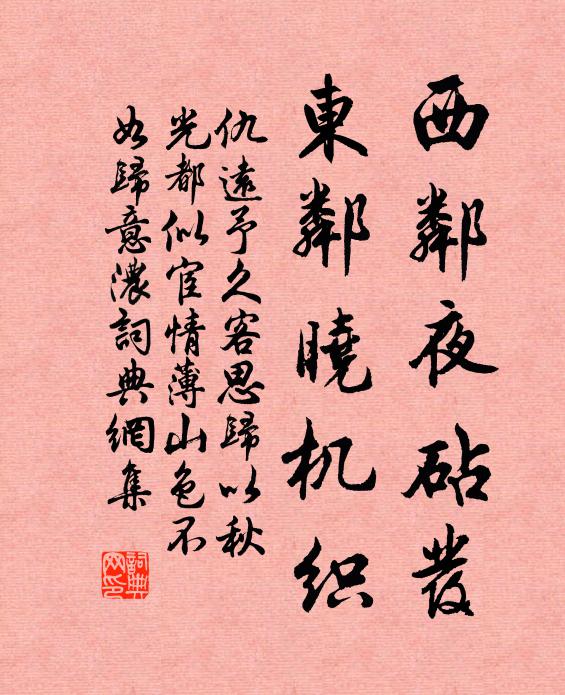 西鄰夜砧發
東鄰曉机织
仇遠予久客思歸以秋
光都似宦情薄山色不
如歸意濃詞典網集
詞典
网印